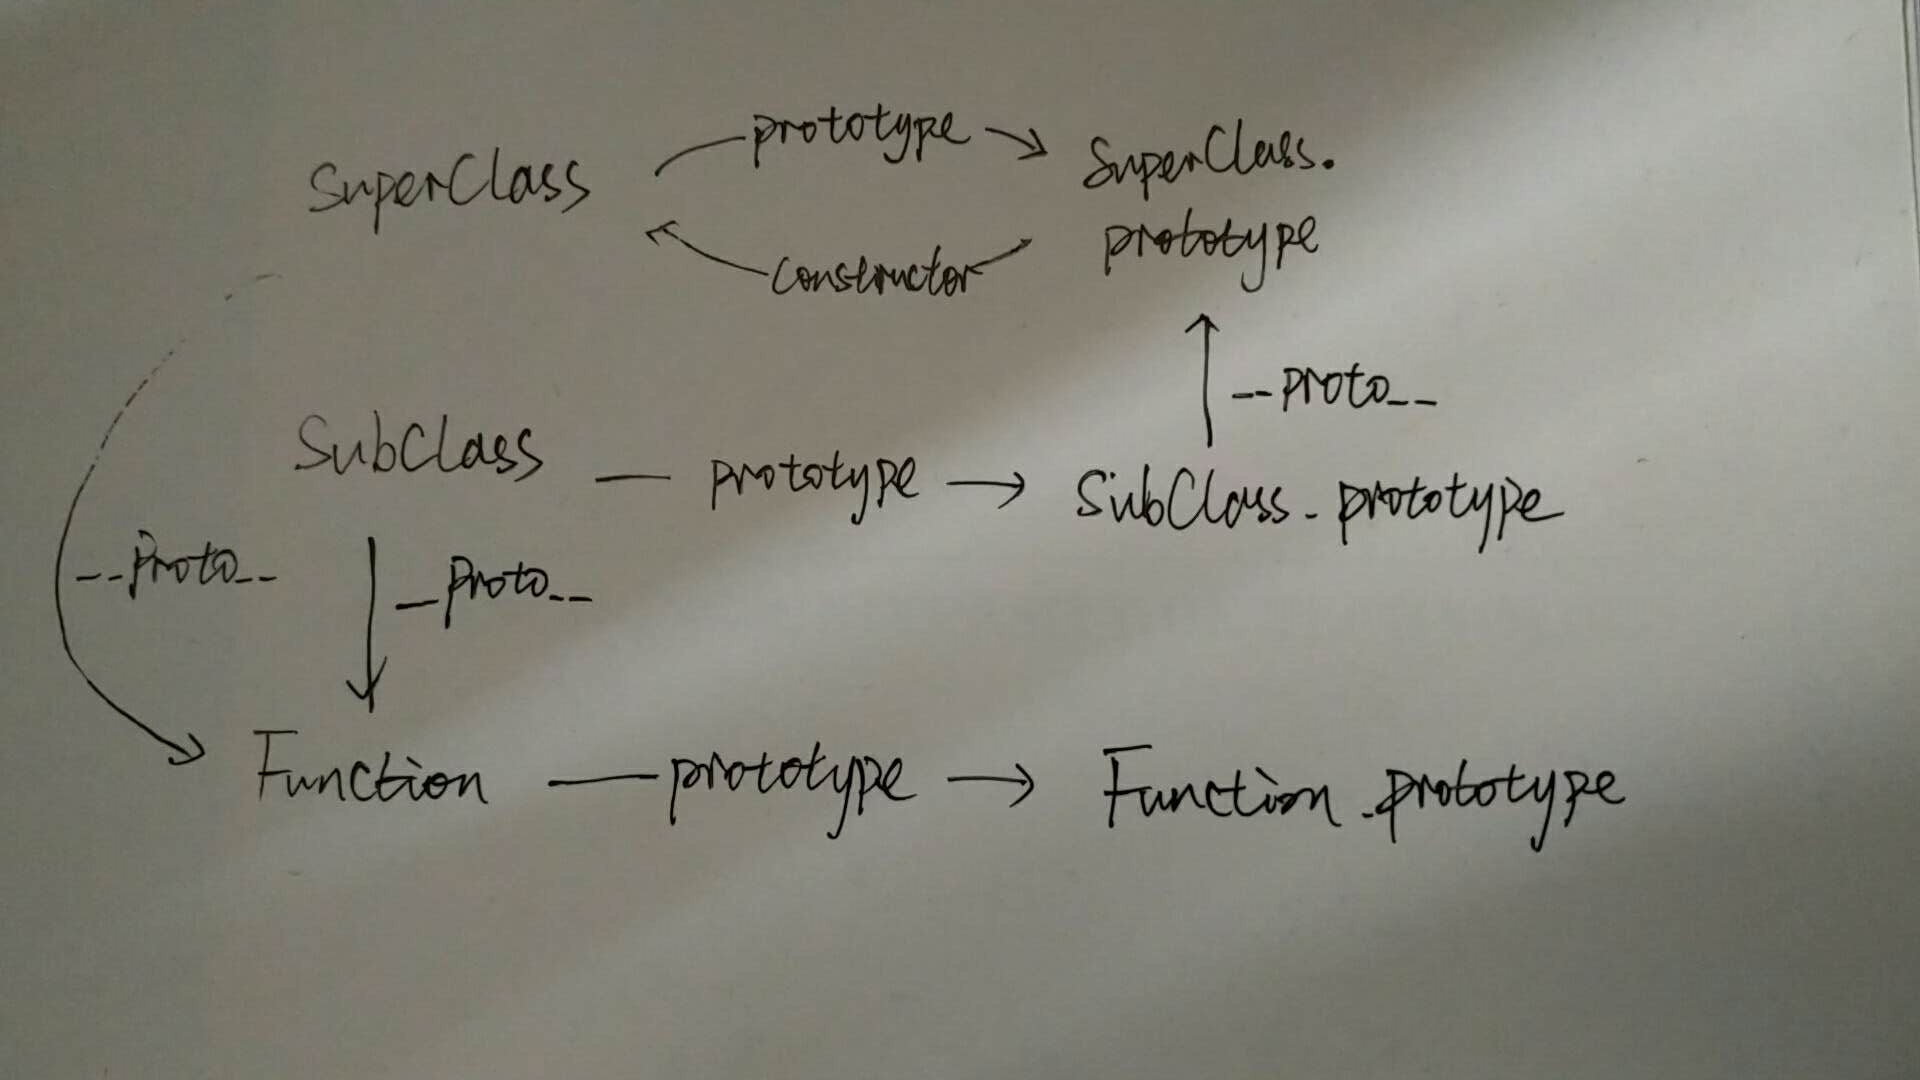 SuperClass prototype SuperClass.
constructor prototype
__proto__
SubClass prototype SubClass.prototype
__proto__ _proto__
Function prototype Function.prototype